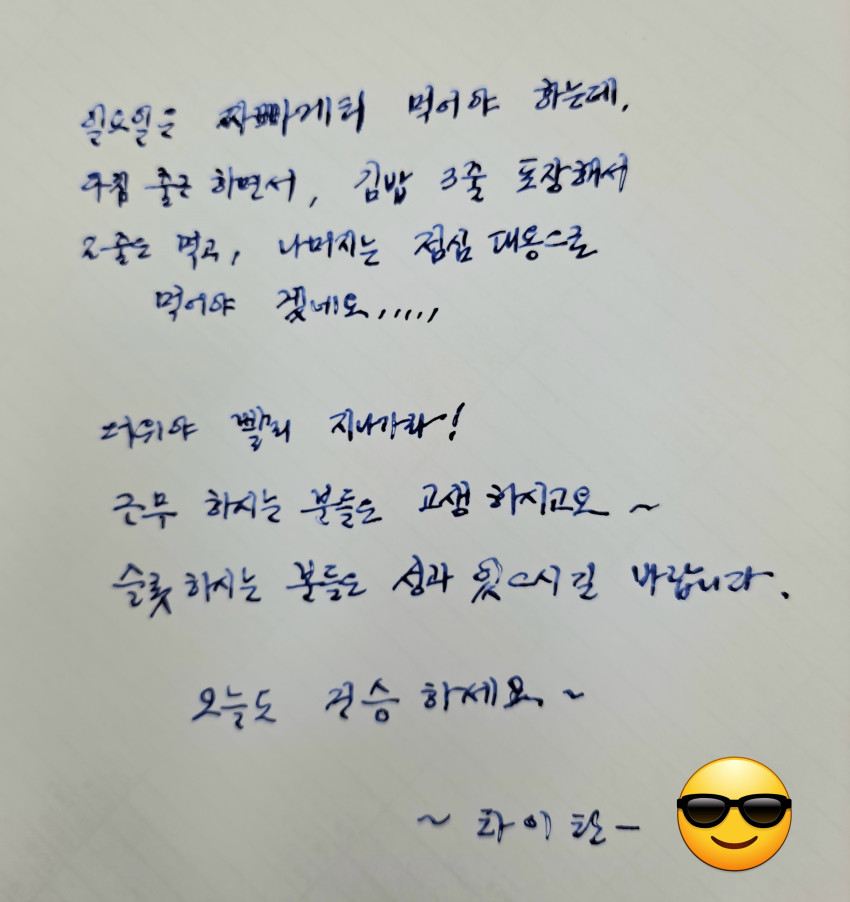 일요일은 짜빠게티 먹어야 하는데,
아침 출근 하면서, 김밥 3줄 포장해서
2줄은 먹고, 나머지는 점심 대용으로
먹어야 겠네요,,,,,
더위야 빨리 지나가라!
근무 하시는 분들은 고생 하시고요 ~
슬롯 하시는 분들은 성과 있으시길 바랍니다.
오늘도 건승 하세요 ~
~ 타이탄 -